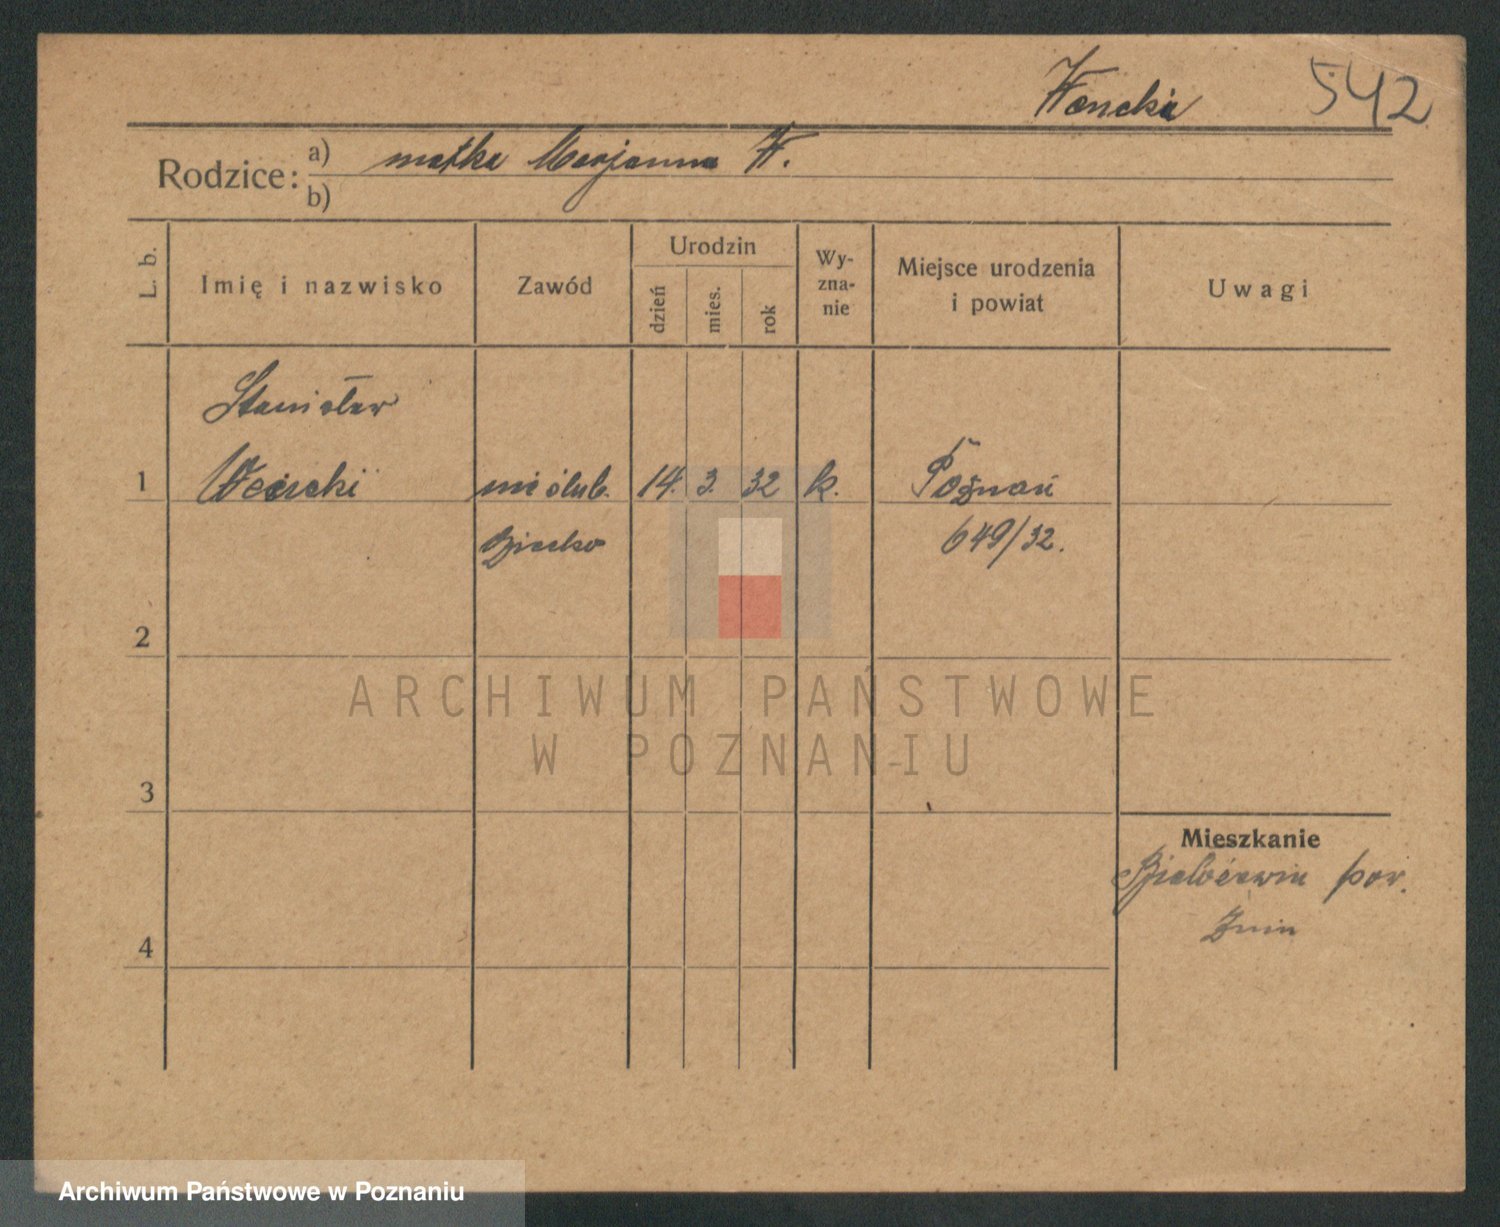 542
Rodzice: a) matka Marjanna W.
b)
L. b.
Imię i nazwisko
Zawód
Urodzin
dzień
mies.
rok
Wy-
zna-
nie
Miejsce urodzenia
i powiat
Uwagi
Stanisław
1 nieślub. 14. 3. 32 k. Poznań
dziecko 649/32.
2
ARCHIWUM PAŃSTWOWE
W POZNANIU
3
Mieszkanie
pow.
Żnin
4
Archiwum Państwowe w Poznaniu